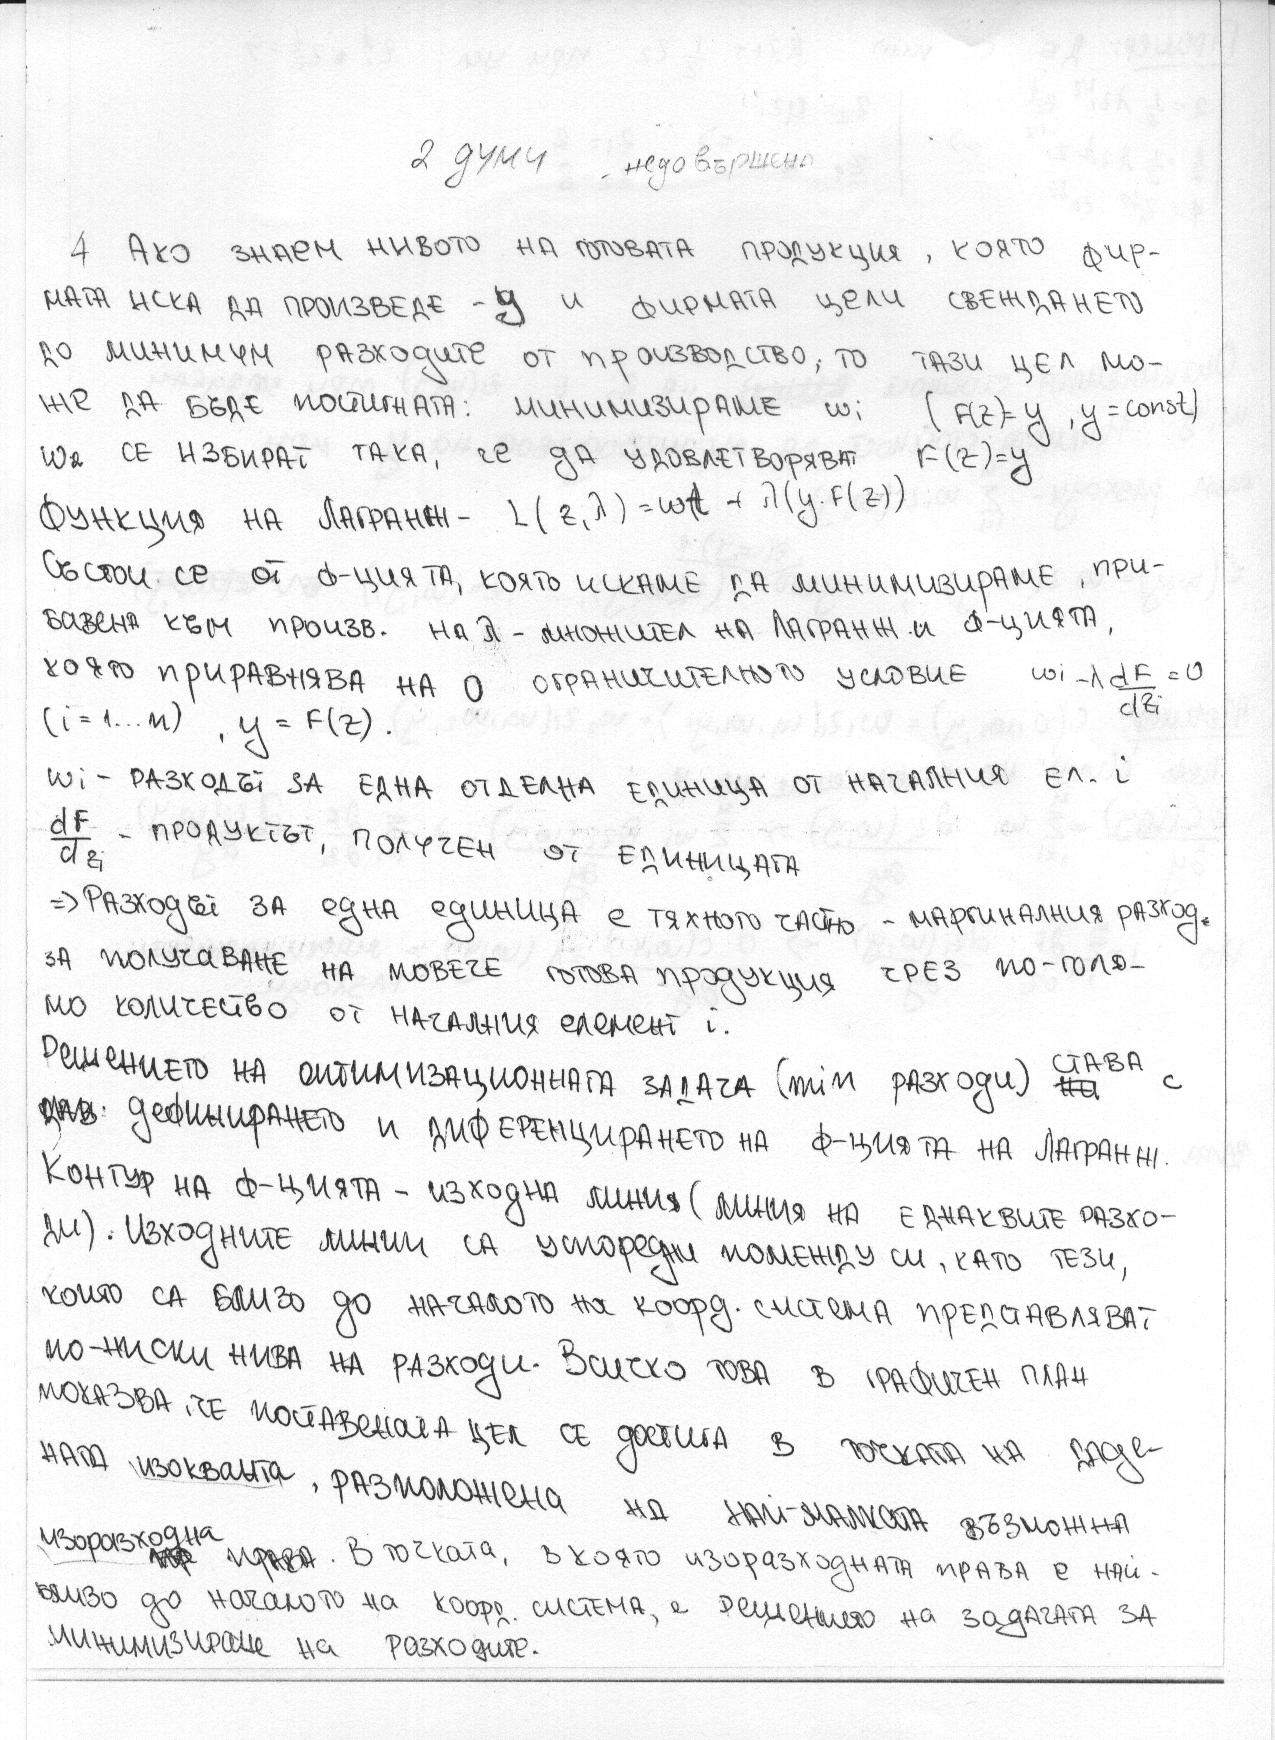 2 думи недовършено
4 Ако знаем нивото на готовата продукция, която фир-
мата иска да произведе - y и фирмата цели свеждането
до минимум разходите от производство, то тази цел мо-
же да бъде постигната: минимизираме wi (F(z)=y, y=const)
се избират така, че да удовлетворяват F(z)=y
Функция на Лагранж - L(z,λ) = wz + λ(y-F(z))
Състои се от ф-цията, която искаме да минимизираме, при-
бавена към произв. на λ - множител на Лагранж и ф-цията,
която приравнява на 0 ограничителното условие wi - λ dF/dzi = 0
(i = 1...n), y = F(z).
wi - разходът за една отделна единица от началния ел. i
dF/dzi - продуктът, получен от единицата
=> Разходът за една единица е тяхното частно - маргиналния разход
за получаване на повече готова продукция чрез по-голя-
мо количество от началния елемент i.
Решението на оптимизационната задача (min разходи) става с
дефинирането и диференцирането на ф-цията на Лагранж.
Контур на ф-цията - изходна линия (линия на еднаквите разхо-
ди). Изходните линии са успоредни помежду си, като тези,
които са близо до началото на коорд. система представляват
по-ниски нива на разходи. Всичко това в графичен план
показва, че поставената цел се достига в точката на даде-
ната изокванта, разположена на най-малката възможна
изоразходна права. В точката, в която изоразходната права е най-
близо до началото на коорд. система, е решението на задачата за
минимизиране на разходите.